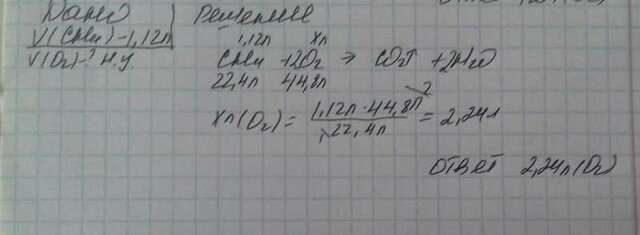 Дано
V(CH4) - 1,12л
V(O2) - ? н.у.
Решение
1,12л хл
CH4 + 2O2 → CO2↑ + 2H2O
22,4л 44,8л
хл(O2) = 1,12л · 44,8л / 22,4л = 2,24л
2
1
ответ 2,24л(O2)